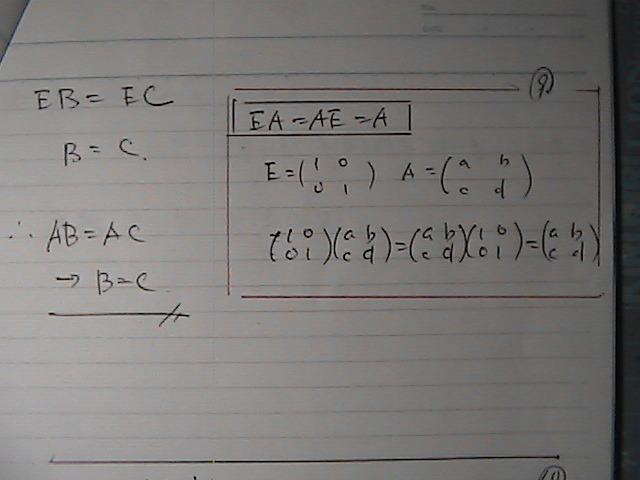 EB = EC
B = C.
∴ AB = AC
→ B = C
⑨
EA = AE = A
E = (1 0 / 0 1) A = (a b / c d)
(1 0 / 0 1)(a b / c d) = (a b / c d)(1 0 / 0 1) = (a b / c d)